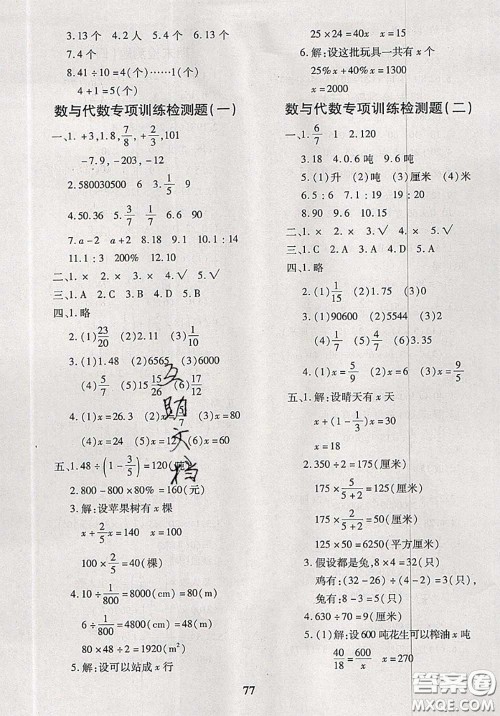 3.13个 4.2人 5.9个 6.9个 7.13个
8.41÷10=4(个)……1(个)
4+1=5(个)
数与代数专项训练检测题(一)
一、1.+3,1.8,7/8,+2/3,101
-7.9,-203,-12
2.580030500 3.1/5 9
4.50.36 5.3/7 1/7 6.86.91
7.a-2 a+2 8.9 9.18 10.7
11.1:3 200% 12.10
二、1.× 2.× 3.× 4.√ 5.√
三、1.A 2.B 3.C 4.B 5.A
四、1.略
2.(1)23/20 (2)2.11 (3)1/6
3.(1)1.48 (2)6565 (3)8
(4)5/7 (5)15 15/26 (6)17/12
4.(1)x=26.3 (2)x= /7 (3)x=80
(4)x=22 (5)x=12 (6)x=60
五、1.48÷(1-3/5)=120( )
2.800-800×80%=160(元)
3.解:设苹果树有x棵
x+3/2x=100 x=40
100×2/5=40(棵)
4.10÷1/800=8000(cm)=80(m)
6÷1/800=4800(cm)=48(m)
80×48÷2=1920(m²)
5.解:设可以站成x行
25×24=40x x=15
6.解:设这批玩具一共有x个
25%x+40%x=1300
x=2000
数与代数专项训练检测题(二)
一、1.6/7 1 2.120
3.18 4.0.06 5.6吨
6.(1)升 (2)吨 (3)厘米 (4)米
7.5:1 8.19:54 9.19:20
10.80 11.9.42
二、1.× 2.× 3.√ 4.√ 5.√
三、1.C 2.A 3.D 4.C 5.A
四、1.略
2.(1)1/15 (2)1.75 (3)0
3.(1)90600 (2)5544 (3)2
(4)6/5 (5)1/15 (6)7
4.(1)x=5/9 (2)x=4 (3)x=9/5
五、1.解:设晴天有x天
x+(1-3/5)x=42
x=30
2.350÷2=175(厘米)
175×5/(5+2)=125(厘米)
175×2/(5+2)=50(厘米)
125×50=6250(平方厘米)
3.假设都是兔,8×4=32(只)
鸡有:(32-26)÷(4-2)=3(只),
兔有:8-3=5(只)
4.630÷70=9(本)
5.(1)解:设600吨花生可以榨油x吨
40/18=600/x x=270
互助文档
77
答案圈
MXQE.COM